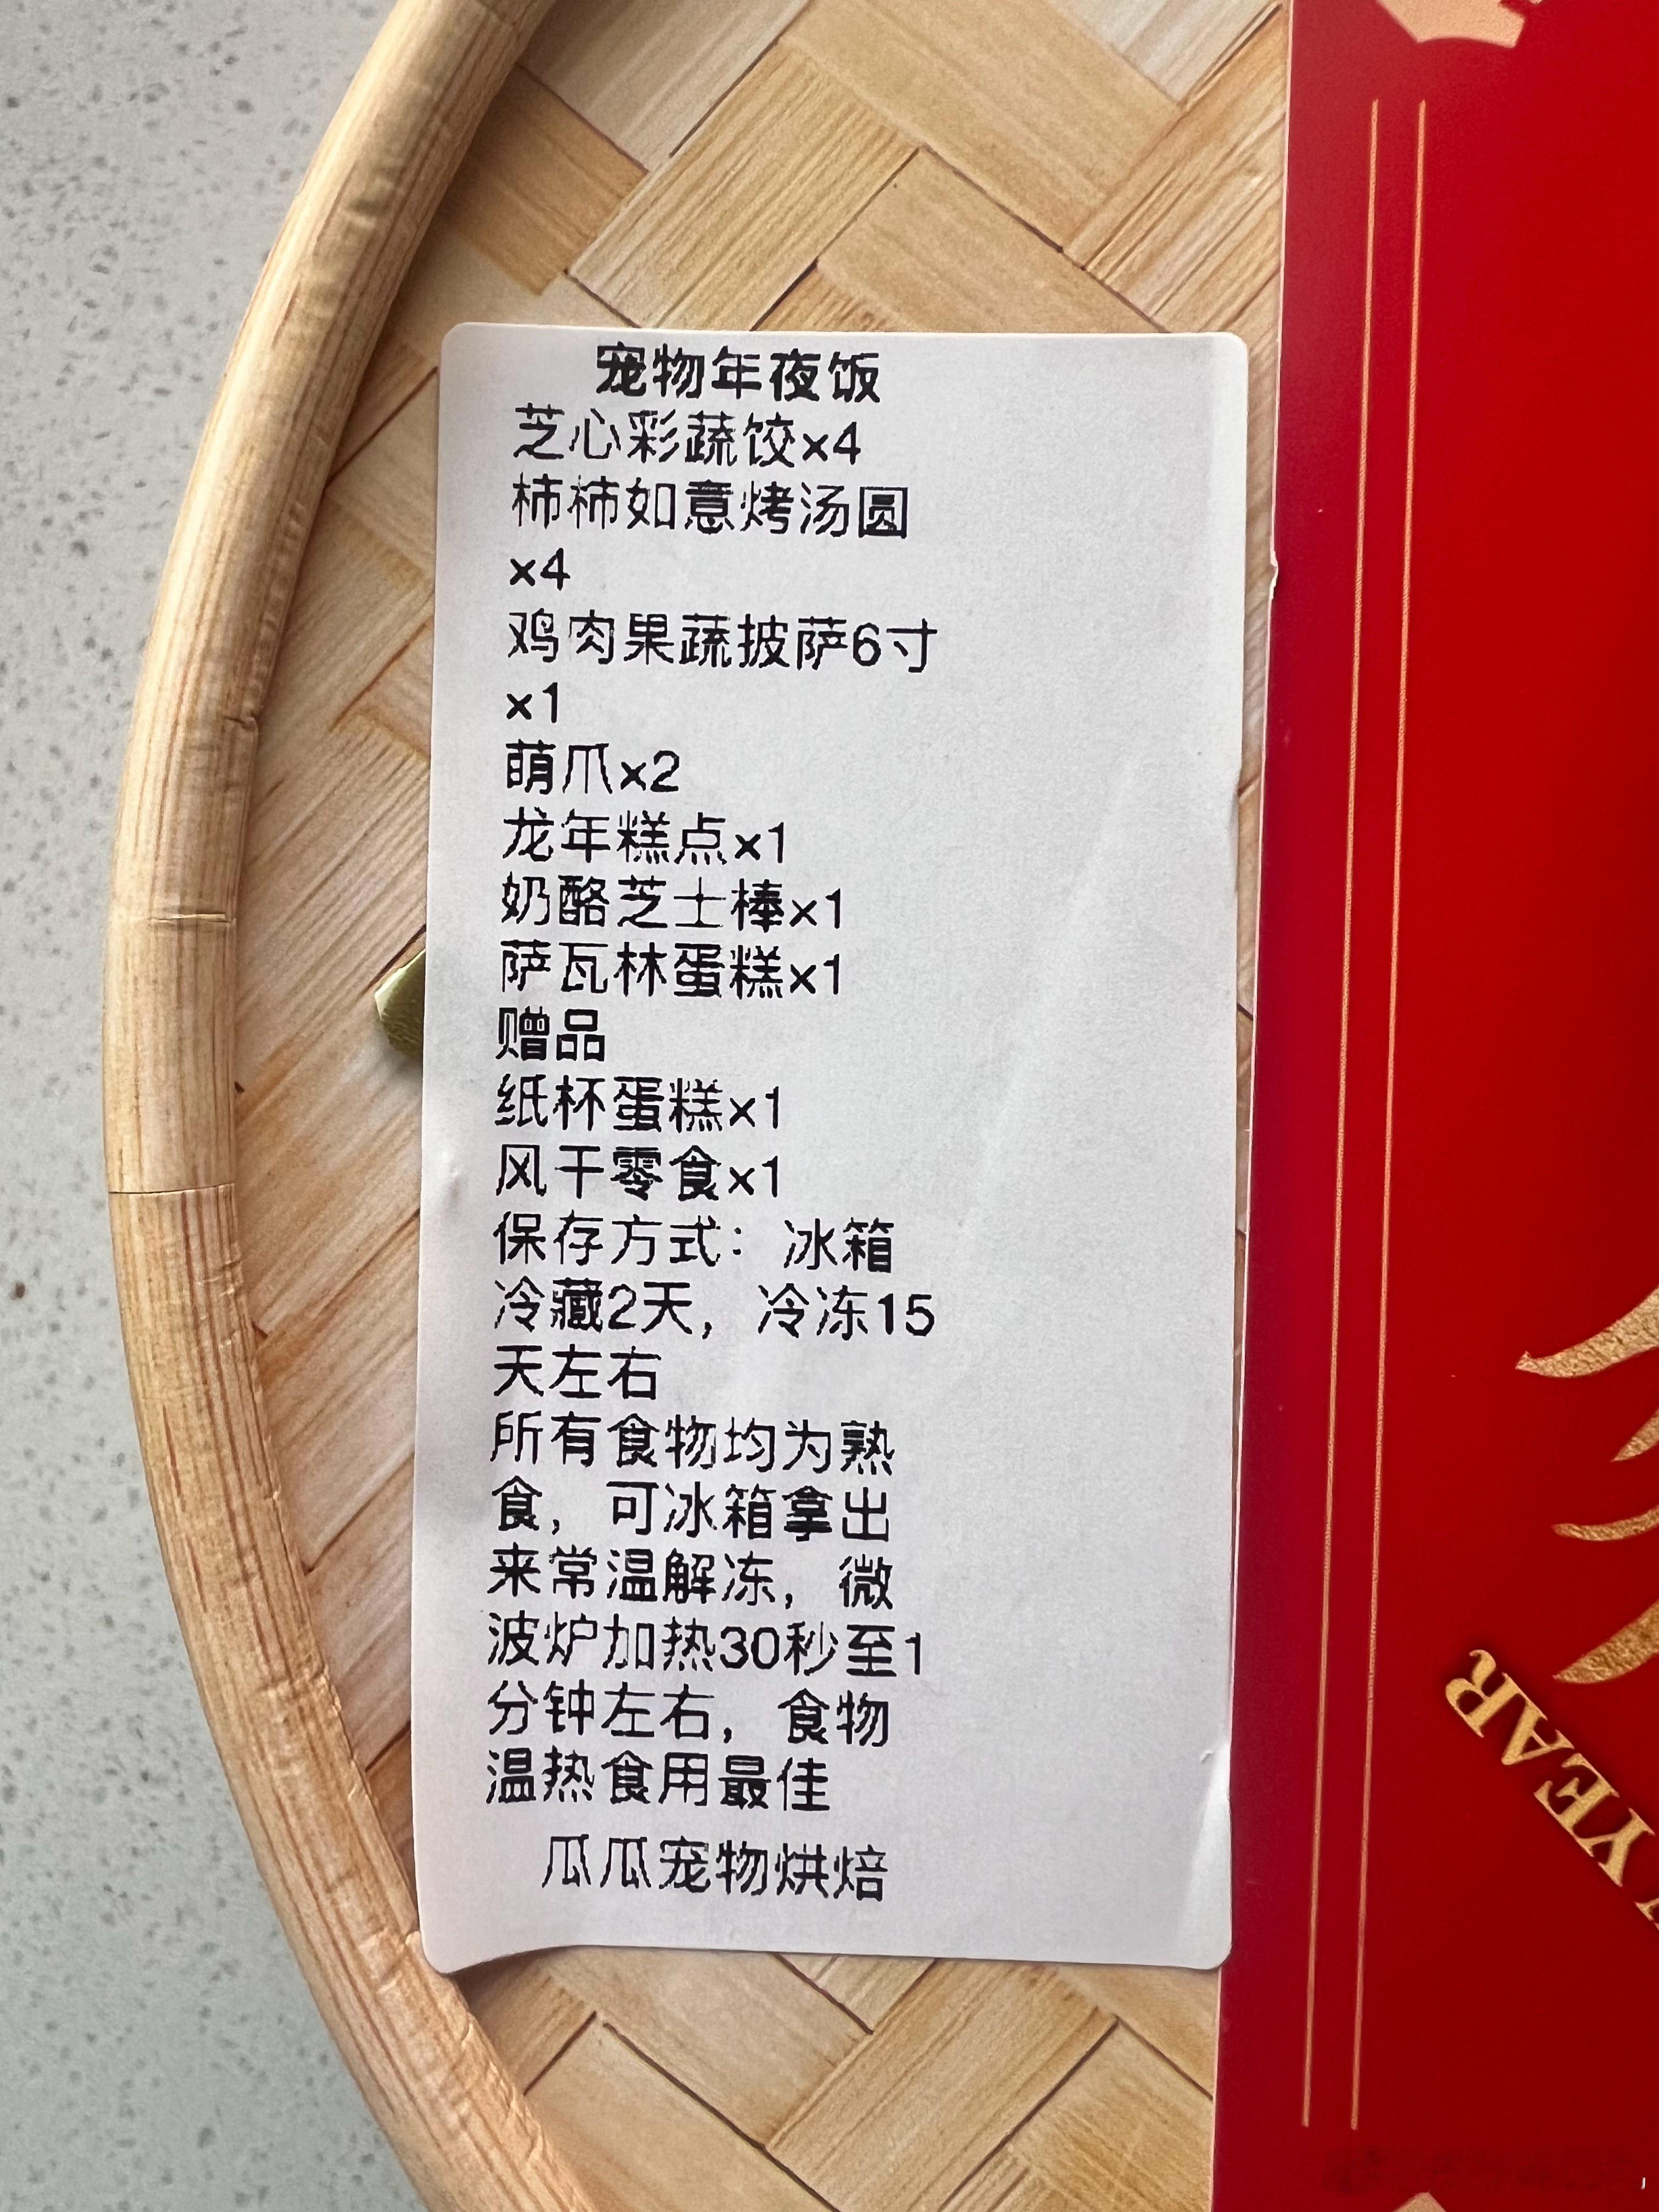 宠物年夜饭
芝心彩蔬饺x4
柿柿如意烤汤圆
x4
鸡肉果蔬披萨6寸
x1
萌爪x2
龙年糕点x1
奶酪芝士棒x1
萨瓦林蛋糕x1
赠品
纸杯蛋糕x1
风干零食x1
保存方式：冰箱
冷藏2天，冷冻15
天左右
所有食物均为熟
食，可冰箱拿出
来常温解冻，微
波炉加热30秒至1
分钟左右，食物
温热食用最佳
瓜瓜宠物烘焙
YEAR